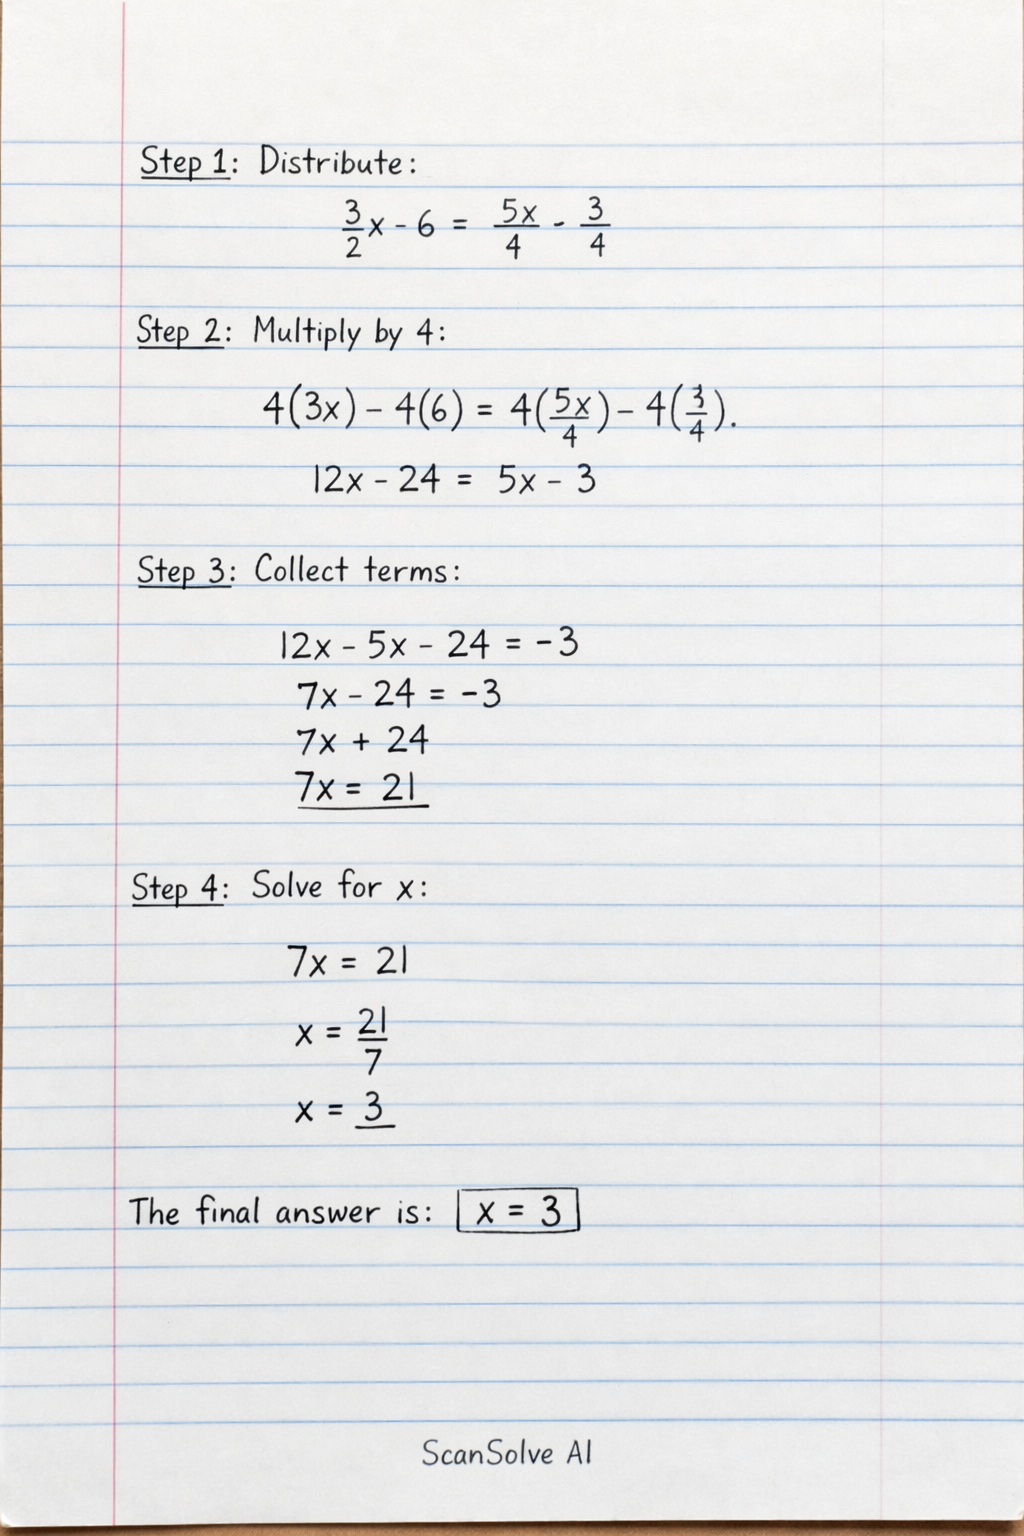 Step 1: Distribute:
3/2 x - 6 = 5x/4 - 3/4
Step 2: Multiply by 4:
4(3x) - 4(6) = 4(5x/4) - 4(3/4).
12x - 24 = 5x - 3
Step 3: Collect terms:
12x - 5x - 24 = -3
7x - 24 = -3
7x + 24
7x = 21
Step 4: Solve for x:
7x = 21
x = 21/7
x = 3
The final answer is: x = 3
ScanSolve AI